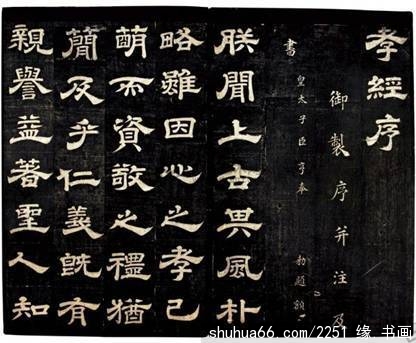 孝經序
御製序并注及
書
皇太子臣亨奉 勅題額
朕聞上古其風朴
略雖因心之孝已
萌而資敬之禮猶
簡及乎仁義既有
親譽益著聖人知
shuhua66.com/2251 缘 书画